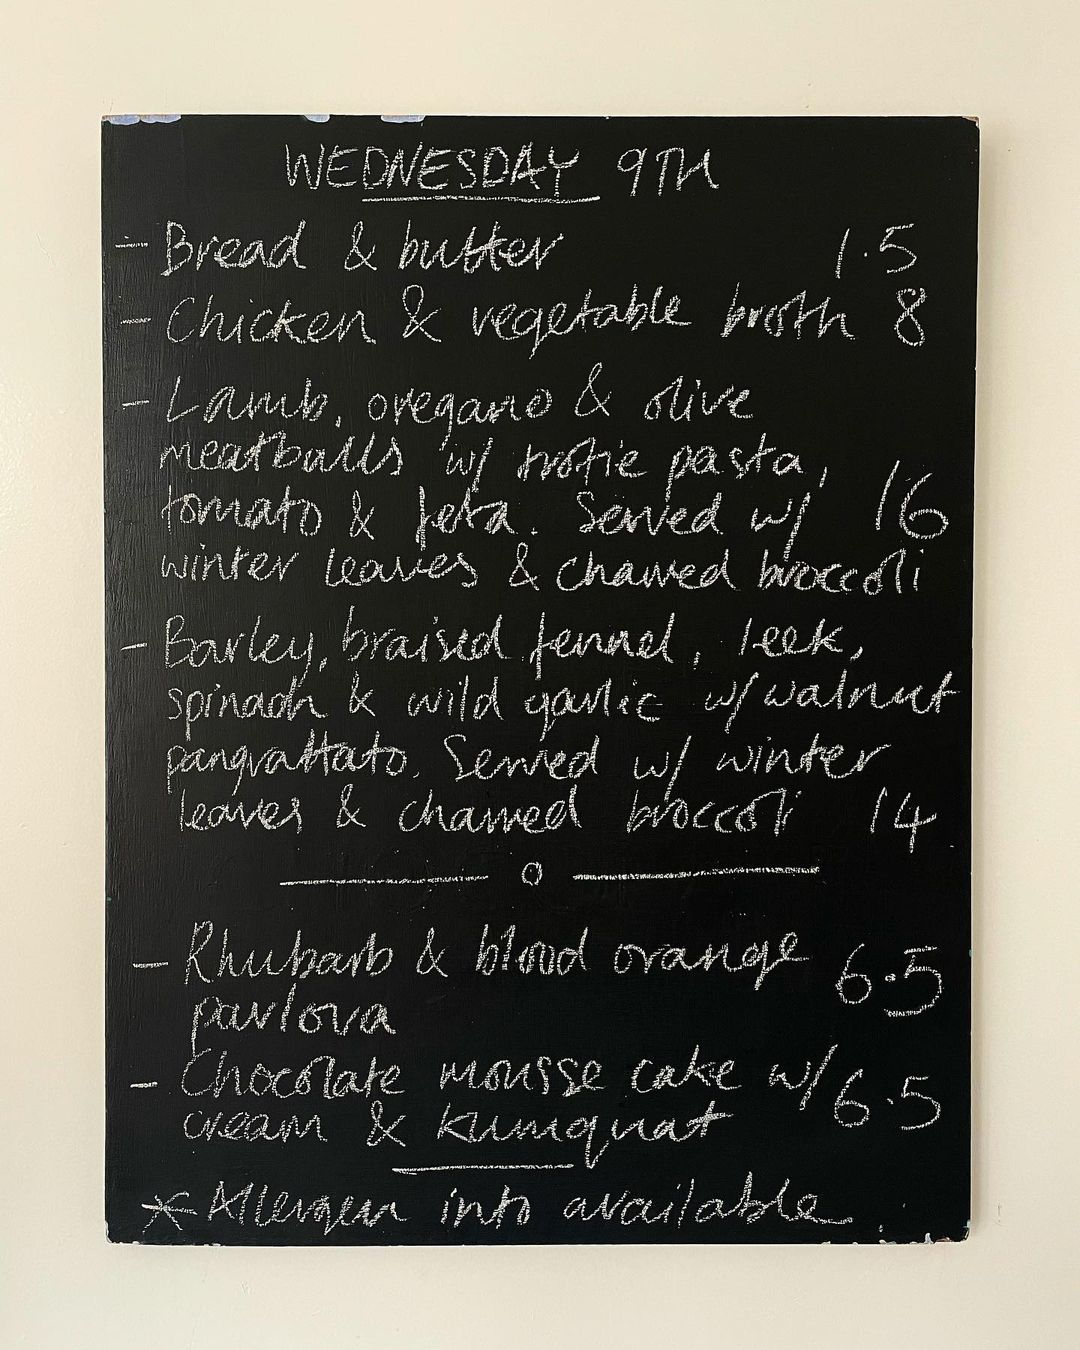 WEDNESDAY 9TH
- Bread & butter 1.5
- Chicken & vegetable broth 8
- Lamb, oregano & olive
meatballs w/ trofie pasta,
tomato & feta. Served w/ 16
winter leaves & charred broccoli
- Barley, braised fennel, leek,
spinach & wild garlic w/ walnut
pangrattato. Served w/ winter
leaves & charred broccoli 14
- Rhubarb & blood orange 6.5
pavlova
- Chocolate mousse cake w/ 6.5
cream & kumquat
* Allergen info available.